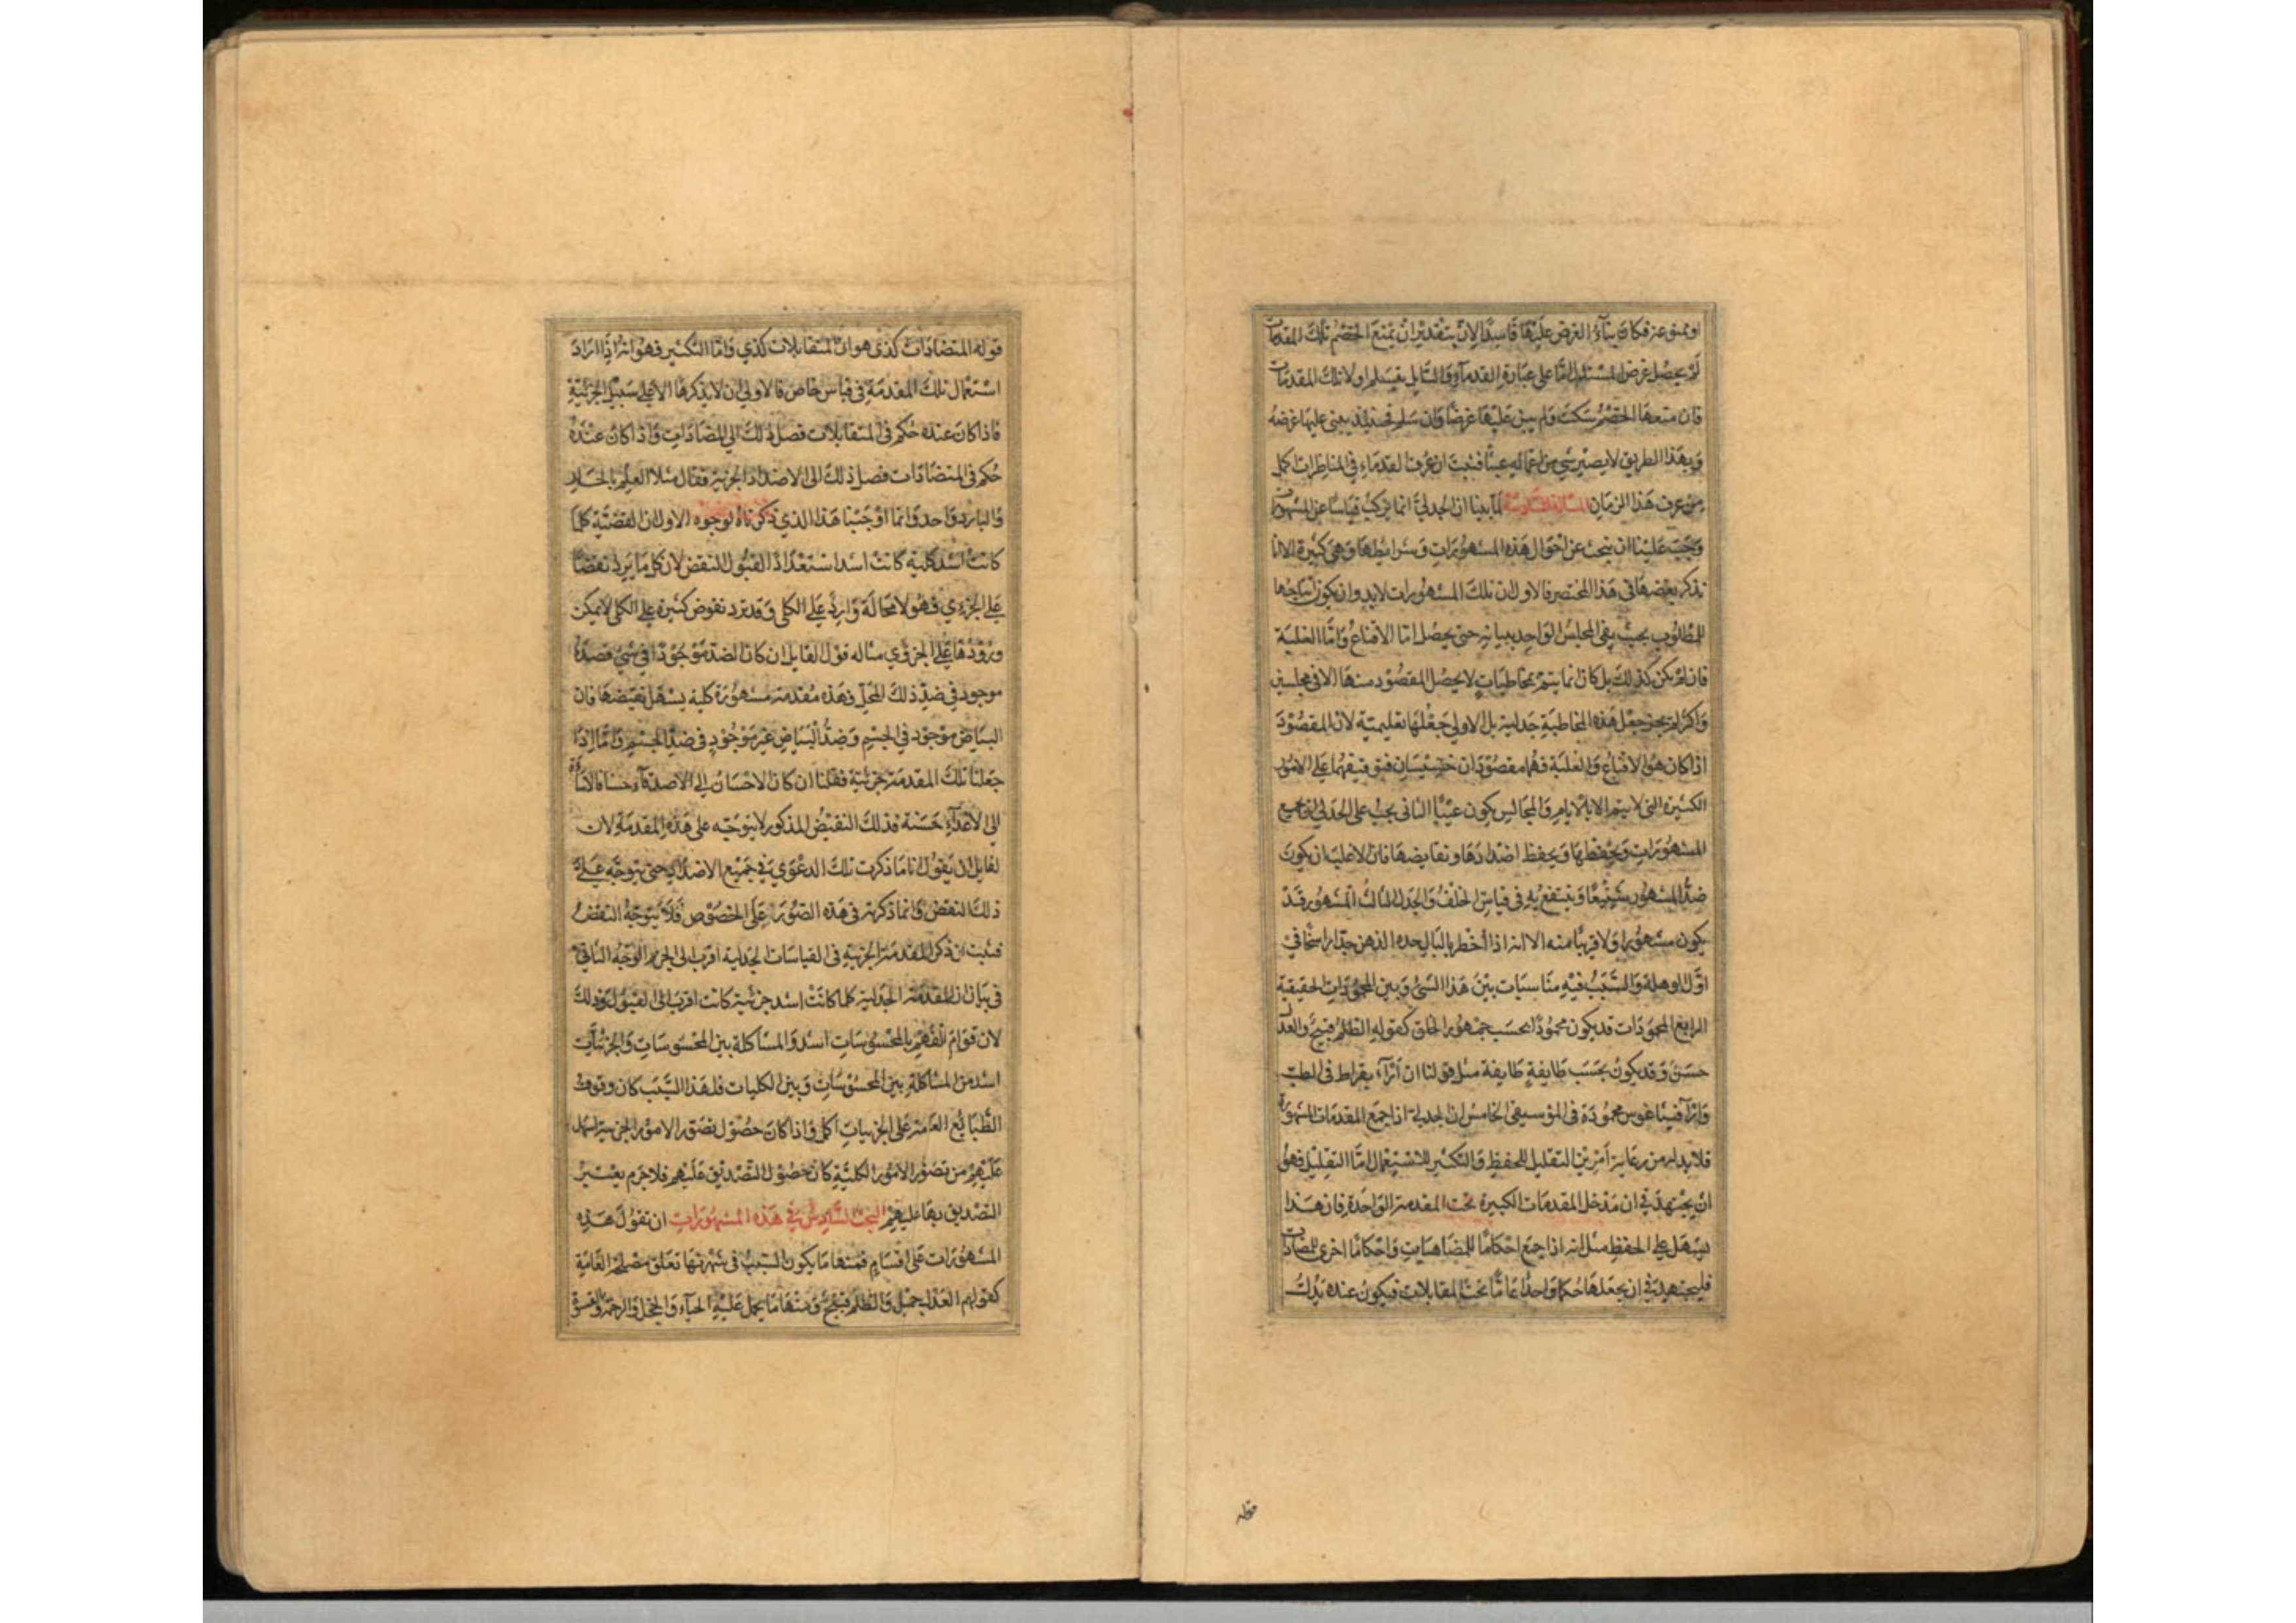 او ممنوعة فكان بناء الغرض عليها فاسدا لان بتقدير ان يمنع الخصم تلك المقدمات
لم يحصل غرض المستدل اما على عبارة القدماء فالسايل يتسلم اولا تلك المقدمات
فان منعها الخصم سكت ولم يبن عليها غرضا وان سلم فحينئذ يبنى عليها غرضه
وبهذا الطريق لا يصير شي من افعاله عبثا فثبت ان عرف القدماء في المناظرات اكمل
من عرف هذا الزمان المسالة السادسة لما بينا ان الجدلي انما يركب قياسا عن المشهورات
وجب علينا ان نبحث عن احوال هذه المشهورات وشرايطها وهي كثيرة الا انا
نذكر بعضها في هذا المختصر فالاول ان تلك المشهورات لابد وان يكون انتاجها
للمطلوب بحيث يفي المجلس الواحد ببيانه حتى يحصل اما الاقناع واما الغلبة
فان لم يكن كذلك بل كان انما يتم بمخاطبات لا يحصل المقصود منها الا في مجلسين
واكثر لم يجز جعل هذه المخاطبة جدلية بل الاولى جعلها تعليمية لان المقصود
اذا كان هو الاقناع والغلبة فهما مقصودان خسيسان فتوقيفهما على الامور
الكثيرة التي لا يتم الا بالايام والمجالس يكون عبثا الثاني يجب على الجدلي ان يجمع
المشهورات ويحفظها ويحفظ اضدادها ونقايضها فان الاغلب ان يكون
ضد المشهور شنيعا وينتفع به في قياس الخلف والجدل الثالث المشهور قد
يكون مشهورا ولا قريبا منه الا انه اذا اخطر بالبال حده الذهن جدا راسخا في
اول الوهلة والسبب فيه مناسبات بين هذا الشئ وبين المحمودات الحقيقية
الرابع المحمودات قد يكون محمودا بحسب جمهور الخلق كقوله الظلم قبيح والعدل
حسن وقد يكون بحسب طايفة طايفة مثل قولنا ان اراء بقراط في الطب
واراء فيثاغورس محمودة في الموسيقى الخامس ان الجدلي اذا جمع المقدمات المشهورة
فلابد له من رعاية امرين التقليل للحفظ والتكثير للاستعمال اما التقليل فهو
ان يجتهد في ان مدخل المقدمات الكبيرة تحت المقدمة الواحدة فان هذا
يسهل على الحفظ مثل انه اذا جمع احكاما للمضاهيات واحكاما اخرى للمضادات
فليجتهد في ان يجعلها حكما واحدا عاما تحت المقابلات فيكون عنده بدل
قوله
قوله المتضادات كذى هو ان المتقابلات كذي واما التكثير فهو انه اذا اراد
استعمال تلك المقدمة في قياس خاص فالاولى ان لا يذكرها الا على سبيل الجزئية
فاذا كان عنده حكم في المتقابلات فصل ذلك الى المتضادات واذا كان عنده
حكم في المتضادات فصل ذلك الى الاضداد الجزئية فقال مثلا العلم بالحار
والبارد واحد وانما اوجبنا هذا الذي ذكرناه لوجوه الاول ان القضية كلما
كانت اشد كلية كانت اشد استعدادا لقبول النقض لان كل ما يرد نقضا
على الجزوي فهو لا محالة وارد على الكلي وقد يرد نقوض كثيرة على الكلي لا يمكن
ورودها على الجزوي مثاله قول القايل ان كان الضد موجودا في شي فضده
موجود في ضد ذلك المحل فهذه مقدمة مشهورة كلية يسهل نقيضها فان
البياض موجود في الجسم وضد البياض غير موجود في ضد الجسم واما اذا
جعلنا تلك المقدمة جزئية فقلنا ان كان الاحسان الى الاصدقاء حسنا فالاساءة
الى الاعداء حسنة فذلك النقيض المذكور لا يتوجه على هذه المقدمة ولان
لقايل ان يقول انا ما ذكرت تلك الدعوى في جميع الاضداد حتى يتوجه على
ذلك النقض وانما ذكرته في هذه الصورة على الخصوص فلا يتوجه النقض
فثبت ان ذكر المقدمة الجزئية في القياسات الجدلية اقرب الى الحزم الوجه الثاني
في بيان ان المقدمة الجدلية كلما كانت اشد جزئية كانت اقرب الى القبول وذلك
لان قوام الفهم بالمحسوسات اشد والمشاكلة بين المحسوسات والجزئيات
اشد من المشاكلة بين المحسوسات وبين الكليات فلهذا السبب كان وقوف
الطبايع العامة على الجزييات اكمل واذا كان حصول تصور الامور الجزئية اسهل
عليهم من تصور الامور الكلية كان حصول التصديق عليهم فلا جرم يعسر
التصديق بها عليهم البحث السادس في هذه المشهورات ان تقول هذه
المشهورات على اقسام فمنها ما يكون السبب في شهرتها تعلق مصلحة العامة
كقولهم العدل جميل والظلم قبيح ومنها ما يحمل عليه الحياء والخجل والرحمة والقسوة